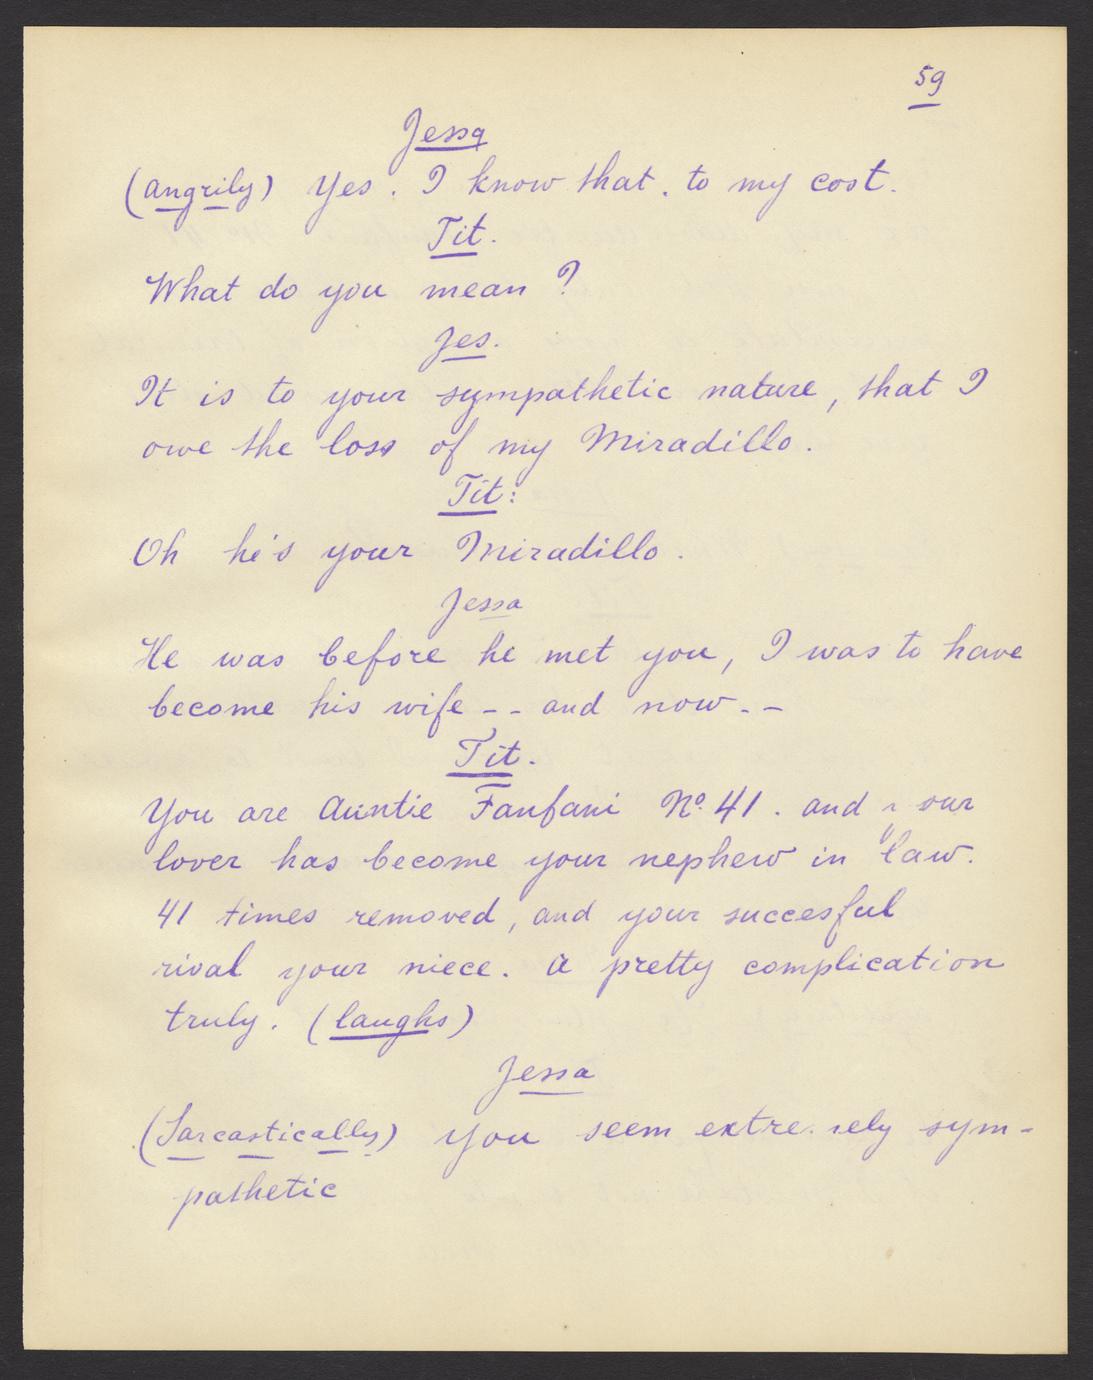 59
Jessa
(angrily) Yes. I know that. to my cost.
Tit.
What do you mean ?
Jes.
It is to your sympathetic nature, that I
owe the loss of my Miradillo.
Tit:
Oh he's your Miradillo.
Jessa
He was before he met you, I was to have
become his wife -- and now --
Tit.
You are Auntie Fanfani No. 41. and your
lover has become your nephew in law.
41 times removed, and your succesful
rival your niece. A pretty complication
truly. (laughs)
Jessa
(Sarcastically) You seem extremely sym-
pathetic